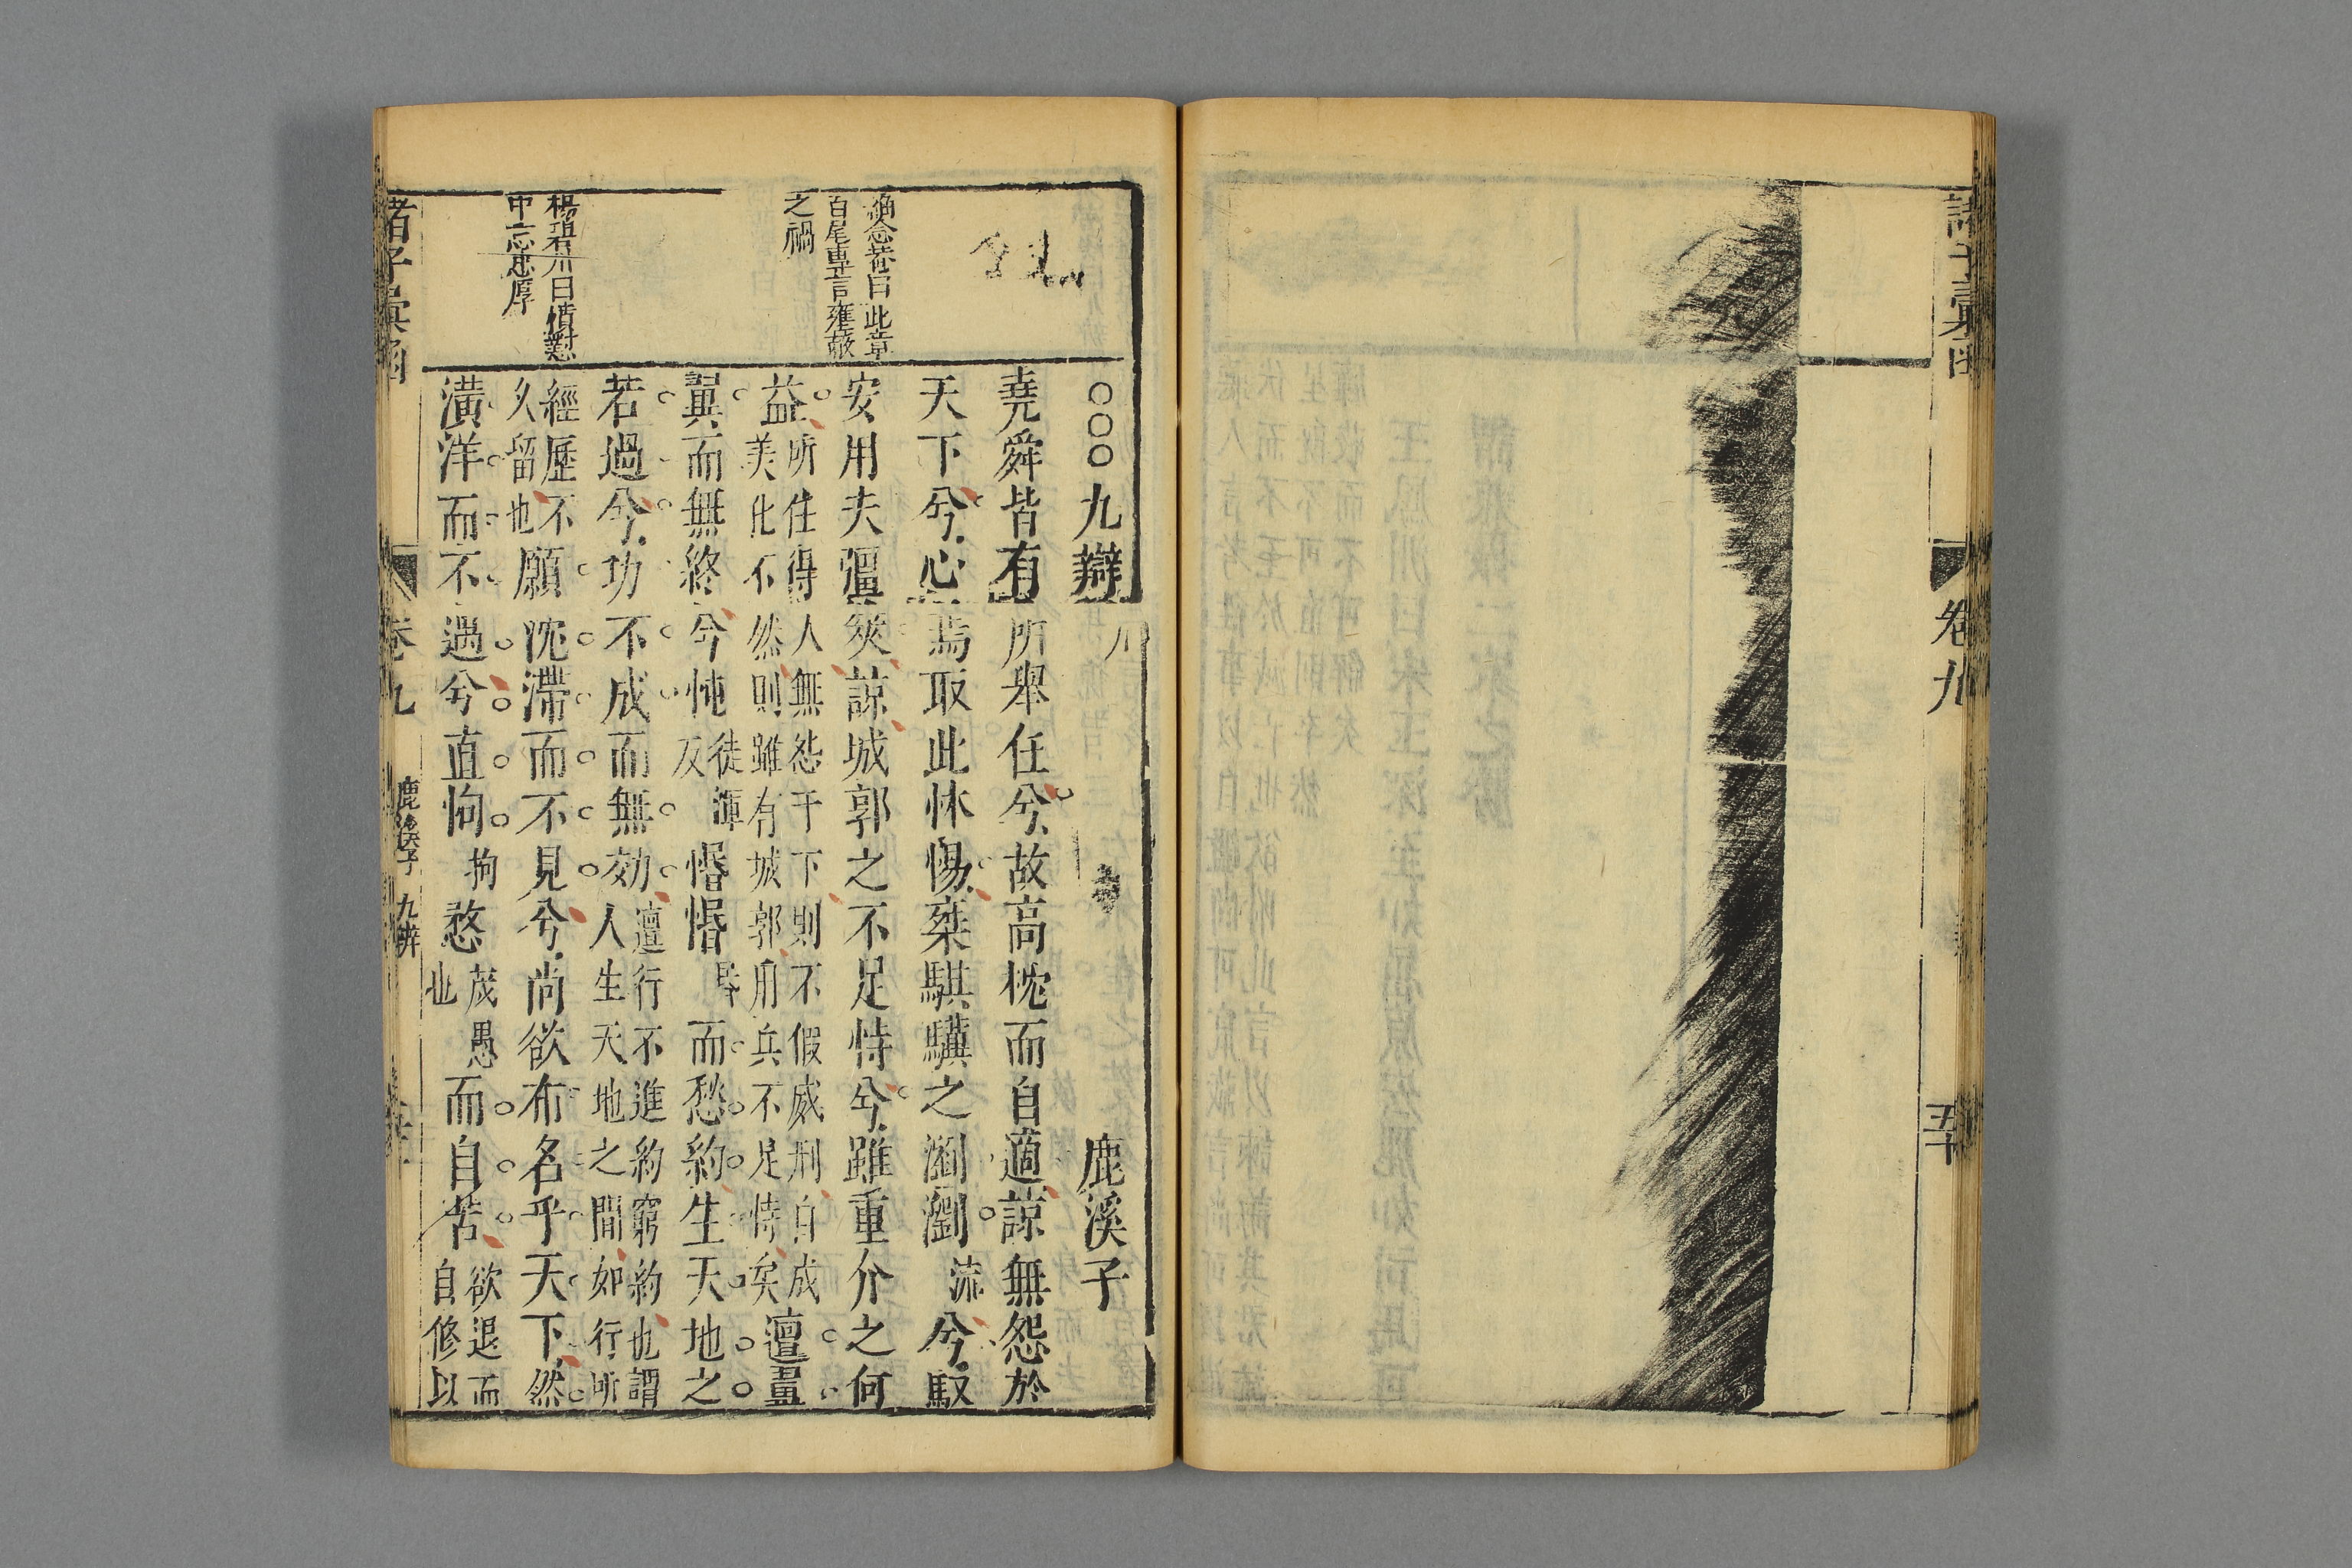 卷九
五十
○○○九辯
鹿溪子
堯舜皆有所舉任兮故高枕而自適諒無怨於
天下兮心焉取此怵惕椉騏驥之瀏瀏流兮馭
安用夫彊筴諒城郭之不足恃兮雖重介之何
益所住得人無怨于下則不假威刑自成
美化不然則雖有城郭用兵不足恃矣邅畺
翼而無終兮忳徒渾
反惽惽昬而愁約生天地之
若過兮功不成而無効邅行不進約窮約也謂
人生天地之間如行所
經歷不
久留也願沈滯而不見兮尚欲布名乎天下然
潢洋而不遇兮直怐拘愗茂愚
也而自苦欲退而
自修以
此章
百尾專言壅蔽
之禍
楊碧川曰憤懟
中忘忠厚
諸子彙函
卷九
鹿溪子 九辨